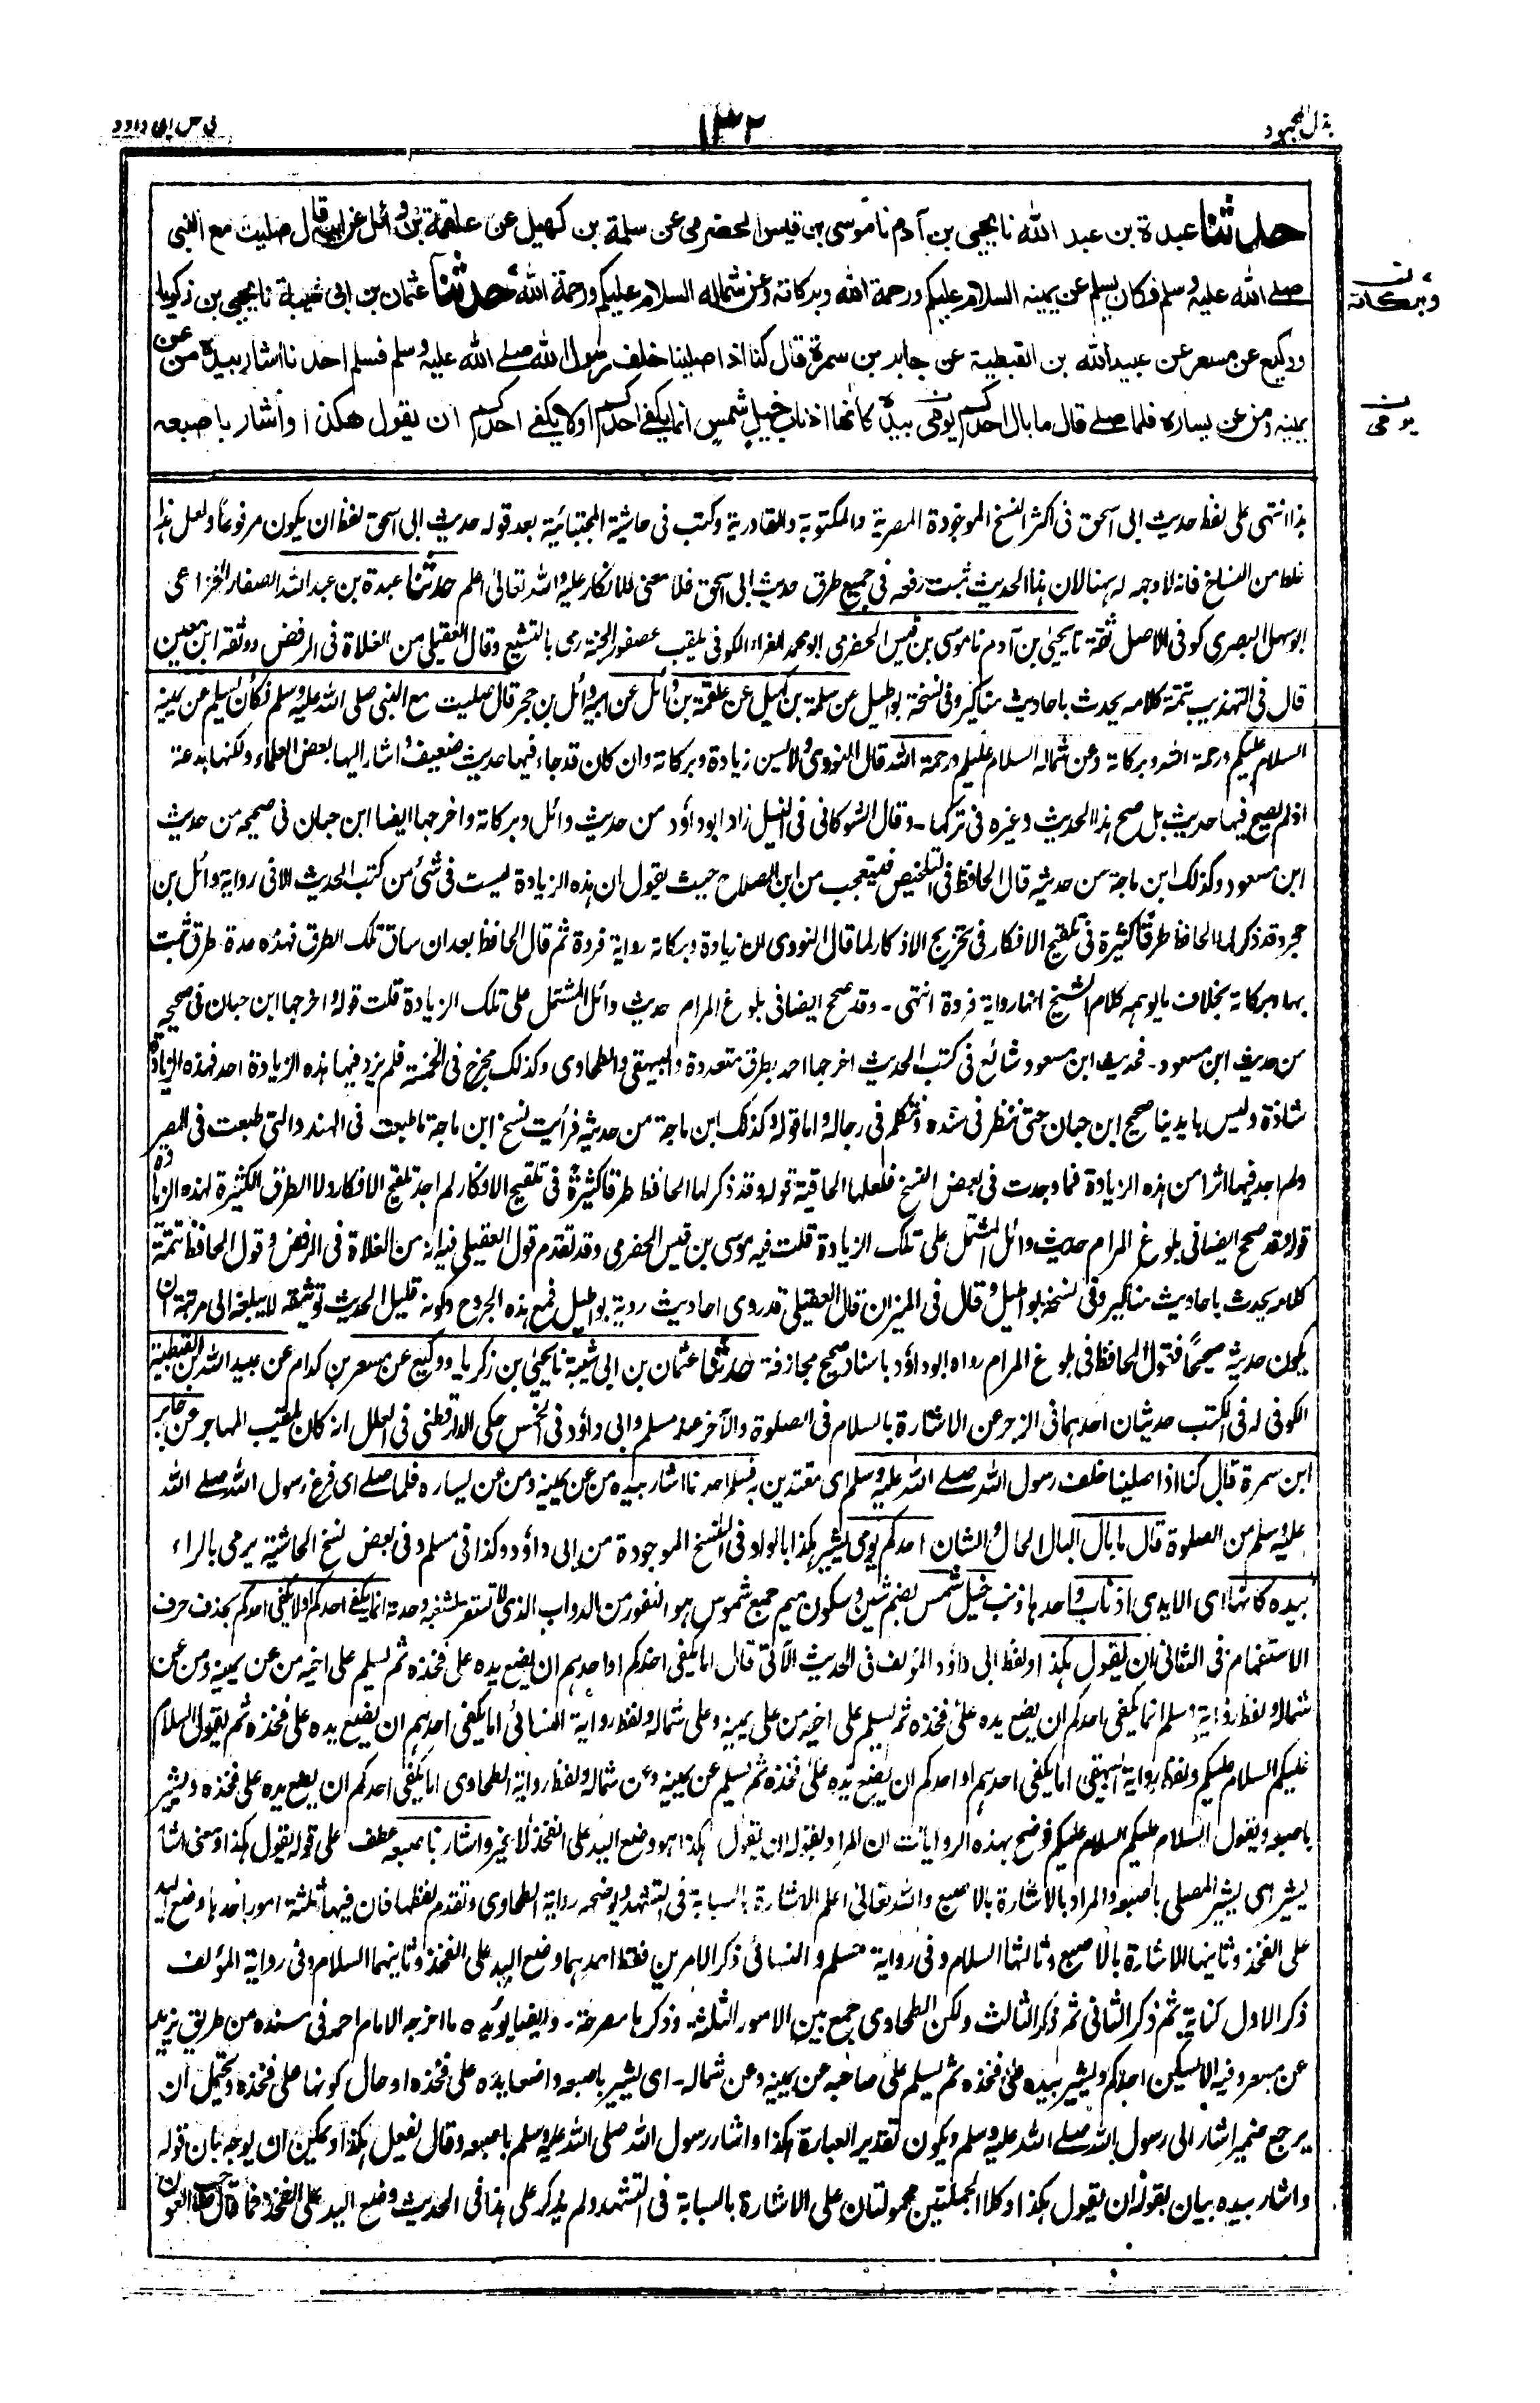 بذل المجهود
١٣٢
فى حل ابى داود
حدثنا عبدة بن عبد الله نا يحيى بن آدم نا موسى بن قيس الحضرمى عن سلمة بن كهيل عن علقمة بن وائل عن ابيه قال صليت مع النبى
صلے الله عليه وسلم فكان يسلم عن يمينه السلام عليكم ورحمة الله وبركاته وعن شماله السلام عليكم ورحمة الله حدثنا عثمان بن ابى شيبة نا يحيى بن زكريا
وبركاته
ووكيع عن مسعر عن عبيد الله بن القبطية عن جابر بن سمرة قال كنا اذا صلينا خلف رسول الله صلے الله عليه وسلم فسلم احدنا اشار بيده من عن
يمينه ومن عن يساره فلما صلے قال ما بال احدكم يومى بيده كانها اذناب خيل شمس انما يكفے احدكم اولا يكفے احدكم ان يقول هكذا واشار باصبعه
يومى
هذا انتهى على لفظ حديث ابى اسحق فى اكثر النسخ الموجودة المصرية والمكتوبة والقادرية وكتب فى حاشية المجتبائية بعد قوله حديث ابى اسحق لفظ ان يكون مرفوعاً ولعل هذا
غلط من النساخ فانه لا وجه له ههنا لان هذا الحديث ثبت رفعه فى جميع طرق حديث ابى اسحق فلا معنى للانكار عليه والله تعالى اعلم حدثنا عبدة بن عبد الله الصفار الخزاعى
ابو سهل البصرى كوفى الاصل ثقة نا يحيىٰ بن آدم نا موسى بن قيس الحضرمى ابو محمد الفراء الكوفى يلقب عصفور الجنة رمى بالتشيع وقال العقيلى من الغلاة فى الرفض ووثقه ابن معين
قال فى التهذيب تتمة كلامه يحدث باحاديث مناكير وفى نسخة بواطيل عن سلمة بن كهيل عن علقمة بن وائل عن ابيه وائل بن حجر قال صليت مع النبى صلى الله عليه وسلم فكان يسلم عن يمينه
السلام عليكم ورحمة الله وبركاته وعن شماله السلام عليكم ورحمة الله قال النووى ولا يسن زيادة وبركاته وان كان قد جاء فيها حديث ضعيف واشار اليها بعض العلماء ولكنها بدعة
اذ لم يصح فيها حديث بل صح هذا الحديث وغيره فى تركها - وقال الشوكانى فى النيل زاد ابو داؤد من حديث وائل وبركاته واخرجها ايضا ابن حبان فى صحيحه من حديث
ابن مسعود وكذلك ابن ماجة من حديثه قال الحافظ فى التلخيص فيتعجب من ابن الصلاح حيث يقول ان هذه الزيادة ليست فى شئ من كتب الحديث الا فى رواية وائل بن
حجر وقد ذكر لها الحافظ طرقاً كثيرة فى تلقيح الافكار فى تخريج الاذكار لما قال النووى ان زيادة وبركاته رواية فردة ثم قال الحافظ بعد ان ساق تلك الطرق فهذه عدة طرق ثبت
بها وبركاته بخلاف ما يوهمه كلام الشيخ انها رواية فردة انتهى - وقد صحح ايضا فى بلوغ المرام حديث وائل المشتمل على تلك الزيادة قلت قوله واخرجها ابن حبان فى صحيحه
من حديث ابن مسعود - فحديث ابن مسعود شائع فى كتب الحديث اخرجها احمد بطرق متعددة والبيهقى والطحاوى وكذلك مخرج فى الخمسة فلم يزد فيها هذه الزيادة احد فهذه الزيادة
شاذة وليس بايدينا صحيح ابن حبان حتى ننظر فى سنده ونتكلم فى رجاله واما قوله وكذلك ابن ماجة من حديثه فرأيت نسخ ابن ماجة ما طبعت فى الهند والتى طبعت فى المصر
ولم اجد فيها اثرا من هذه الزيادة فما وجدت فى بعض النسخ فلعلها الحاقية قوله وقد ذكر لها الحافظ طرقا كثيرة فى تلقيح الافكار لم اجد تلقيح الافكار ولا الطرق الكثيرة لهذه الزيادة
قوله وقد صحح ايضا فى بلوغ المرام حديث وائل المشتمل على تلك الزيادة قلت فيه موسى بن قيس الحضرمى وقد تقدم قول العقيلى فيه انه من الغلاة فى الرفض وقول الحافظ تتمة
كلامه يحدث باحاديث مناكير وفى نسخة بواطيل وقال فى الميزان قال العقيلى قد روى احاديث ردية بواطيل فمع هذه الجروح وكونه قليل الحديث توثيقه لا يبلغه الى مرتبة ان
يكون حديثه صحيحاً فقول الحافظ فى بلوغ المرام رواه ابو داؤد باسناد صحيح مجازفة حدثنا عثمان بن ابى شيبة نا يحيىٰ بن زكريا ووكيع عن مسعر بن كدام عن عبيد الله بن القبطية
الكوفى له فى الكتب حديثان احدهما فى الزجر عن الاشارة بالسلام فى الصلوة والآخر عند مسلم وابى داؤد فى الخسف حكى الدارقطنى فى العلل انه كان يلقب المهاجر عن جابر
ابن سمرة قال كنا اذا صلينا خلف رسول الله صلے الله عليه وسلم اى مقتدين به فسلم احدنا اشار بيده من عن يمينه ومن عن يساره فلما صلے اى فرغ رسول الله صلے الله
عليه وسلم من الصلوة قال ما بال البال الحال والشان احدكم يومى يشير هكذا بالواو فى النسخ الموجودة من ابى داؤد وكذا فى مسلم وفى بعض نسخ الحاشية يرمى بالراء
بيده كانها اى الايدى اذناب واحدها ذنب خيل شمس بضم شين وسكون ميم جمع شموس هو النفور من الدواب الذى لا تستقر لشغبه وحدته انما يكفے احدكم اولا يكفى احدكم بحذف حرف
الاستفهام فى الثانى ان يقول هكذا ولفظ ابى داؤد المؤلف فى الحديث الآتى قال اما يكفى احدكم او احدهم ان يضع يده على فخذه ثم يسلم على اخيه من عن يمينه ومن عن
شماله ولفظ رواية مسلم انما يكفى احدكم ان يضع يده على فخذه ثم يسلم على اخيه من على يمينه وعلى شماله ولفظ رواية النسائى اما يكفى احدهم ان يضع يده على فخذه ثم يقول السلام
عليكم السلام عليكم ولفظ رواية البيهقى اما يكفى احدهم او احدكم ان يضع يده على فخذه ثم يسلم عن يمينه وعن شماله ولفظ رواية الطحاوى اما يكفى احدكم ان يضع يده على فخذه ويشير
باصبعه ويقول السلام عليكم السلام عليكم فوضح بهذه الروايات ان المراد بقوله ان يقول هكذا هو وضع اليد على الفخذ لا غير واشار باصبعه عطف على قوله يقول هكذا ومعنى اشار
يشير اى يشير المصلى باصبعه والمراد بالاشارة بالاصبع والله تعالى اعلم الاشارة بالسبابة فى التشهد ويوضحه رواية الطحاوى وتقدم لفظها فان فيها ثلثة امور احدها وضع اليد
على الفخذ وثانيها الاشارة بالاصبع وثالثها السلام وفى رواية مسلم والنسائى ذكر الامرين فقط احدهما وضع اليد على الفخذ وثانيهما السلام وفى رواية المؤلف
ذكر الاول كناية ثم ذكر الثانى ثم ذكر الثالث ولكن الطحاوى جمع بين الامور الثلثة وذكرها مصرحة - وايضا يؤيده ما اخرجه الامام احمد فى مسنده من طريق يزيد
عن مسعر وفيه الا يسكن احدكم ويشير بيده على فخذه ثم يسلم على صاحبه عن يمينه وعن شماله - اى يشير باصبعه واضعا يده على فخذه او حال كونها على فخذه ويحتمل ان
يرجع ضمير اشار الى رسول الله صلے الله عليه وسلم ويكون تقدير العبارة هكذا واشار رسول الله صلى الله عليه وسلم باصبعه وقال يفعل هكذا ويمكن ان يوجه بان قوله
واشار بيده بيان بقوله ان يقول هكذا وكلا الجملتين محمولتان على الاشارة بالسبابة فى التشهد ولم يذكر على هذا فى الحديث وضع اليد على الفخذ وما قال صاحب العون